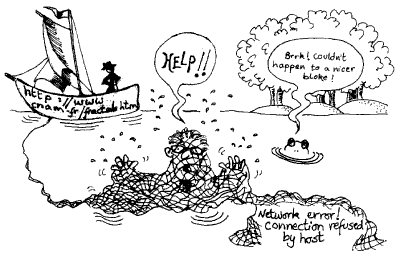 http://www
cnam.fr/fractals.html
HELP!!
Brrk! Couldn't
happen to a nicer
bloke!
Network error!
Connection refused
by host